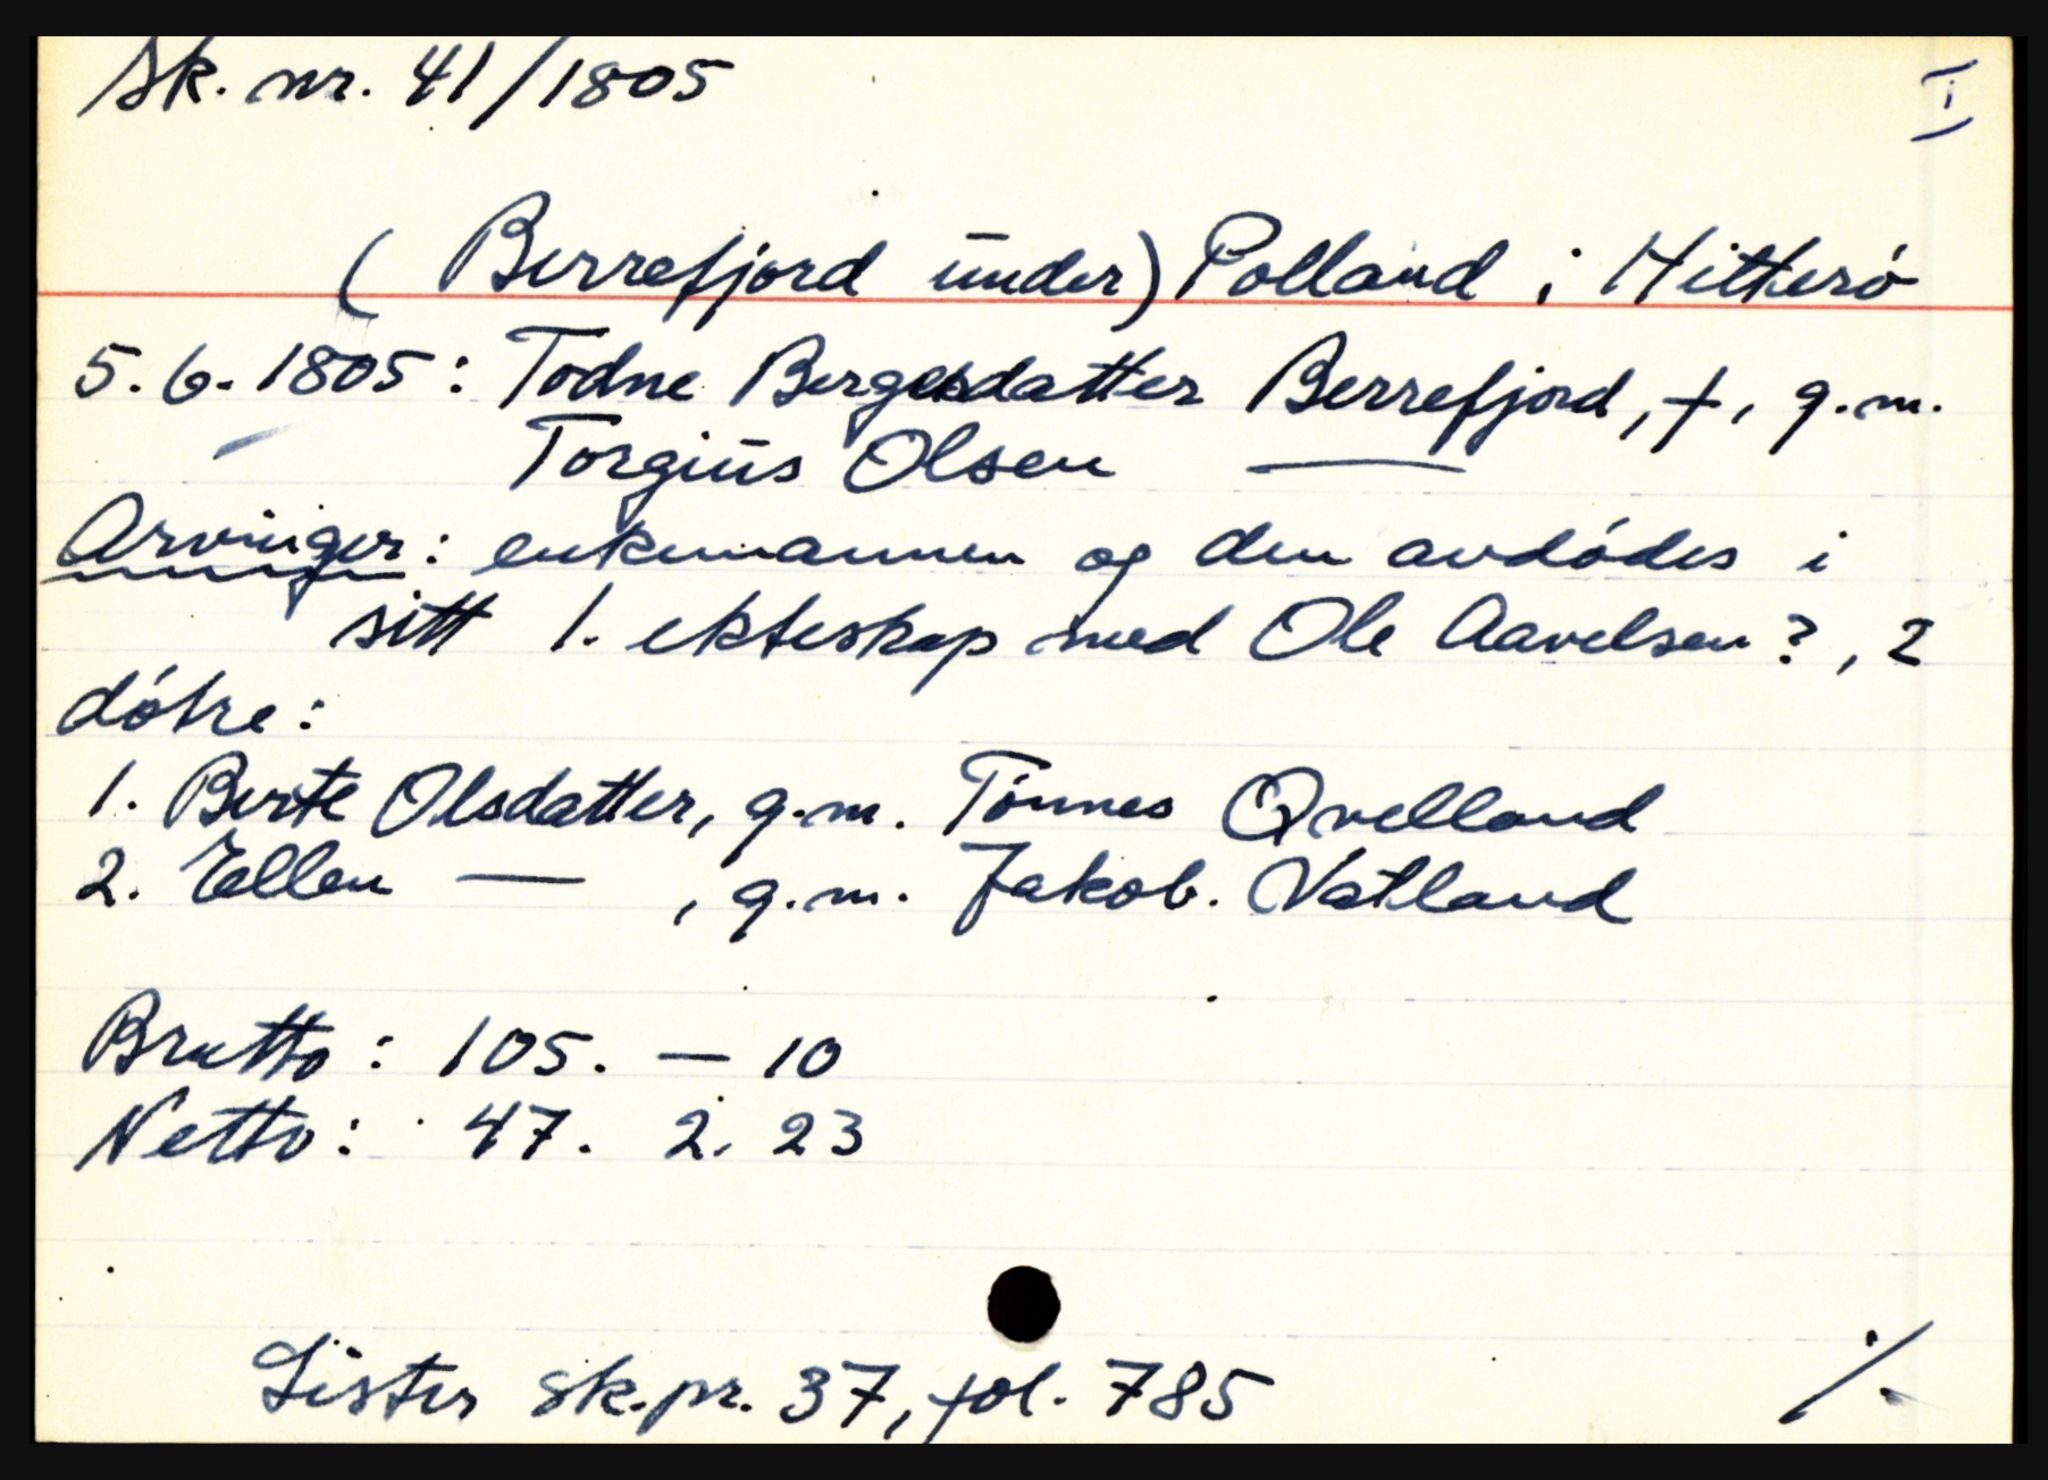 Sk. nr. 41/1805
I
(Berrefjord under) Polland i Hitterø
5.6.1805: Todne Bergesdatter Berrefjord, †, g.m.
Torgius Olsen —
Arvinger: enkemannen og den avdødes i
sitt 1. ekteskap med Ole Aavelsen?, 2
døtre:
1. Berte Olsdatter, g.m. Tønnes Qvelland
2. Ellen — , g.m. Jakob. Vatland
Brutto: 105. — 10
Netto: 47. 2. 23
Lister sk.pr. 37, fol. 785
./.